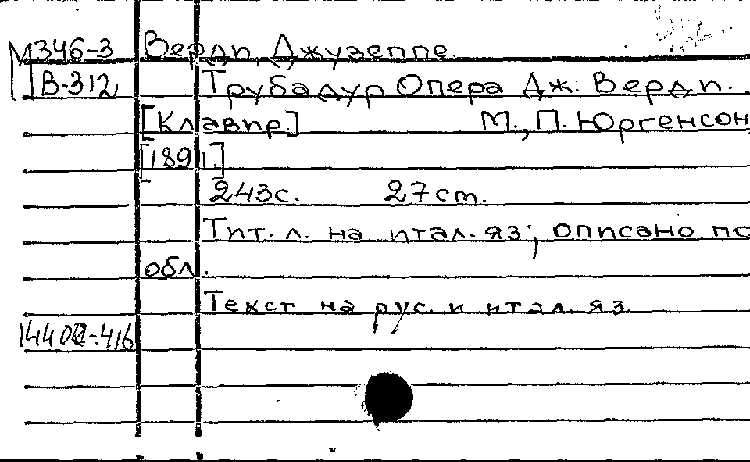 М346-3 Верди, Джузеппе.
В-312 Трубадур Опера Дж. Верди.
[Клавир.] М., П. Юргенсон,
[1891.]
243с. 27cm.
Тит. л. на итал. яз; описано по
обл.
Текст на рус. и итал. яз.